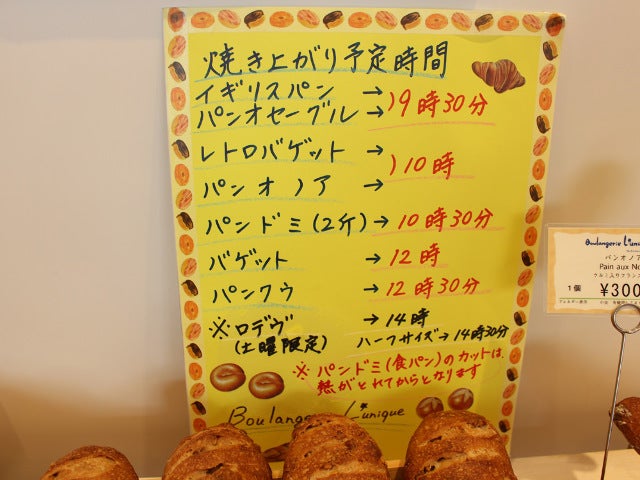 焼き上がり予定時間
イギリスパン →
パンオセーグル → )9時30分
レトロバゲット →
パンオノア → )10時
パンドミ(2斤) → 10時30分
バゲット → 12時
パンクウ → 12時30分
※ロデヴ → 14時
(土曜限定) ハーフサイズ → 14時30分
※パンドミ(食パン)のカットは、
熱がとれてからとなります
Boulangerie L'unique
Boulangerie L'uniqu
パンオノア
Pain aux No
クルミ入りフランス
1個 ¥300